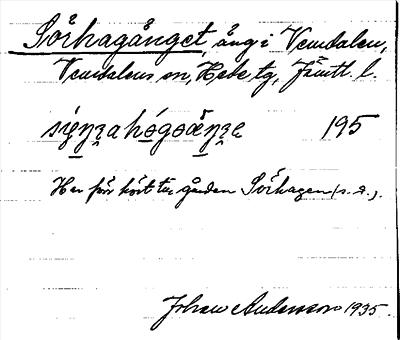 Sörhagånget, äng i Vemdalen,
Vemdalens sn, Hede tg, Jämtl. l.
195
Har förr hört till gården Sörhagen (s. d.).
Johan Andersson 1935.